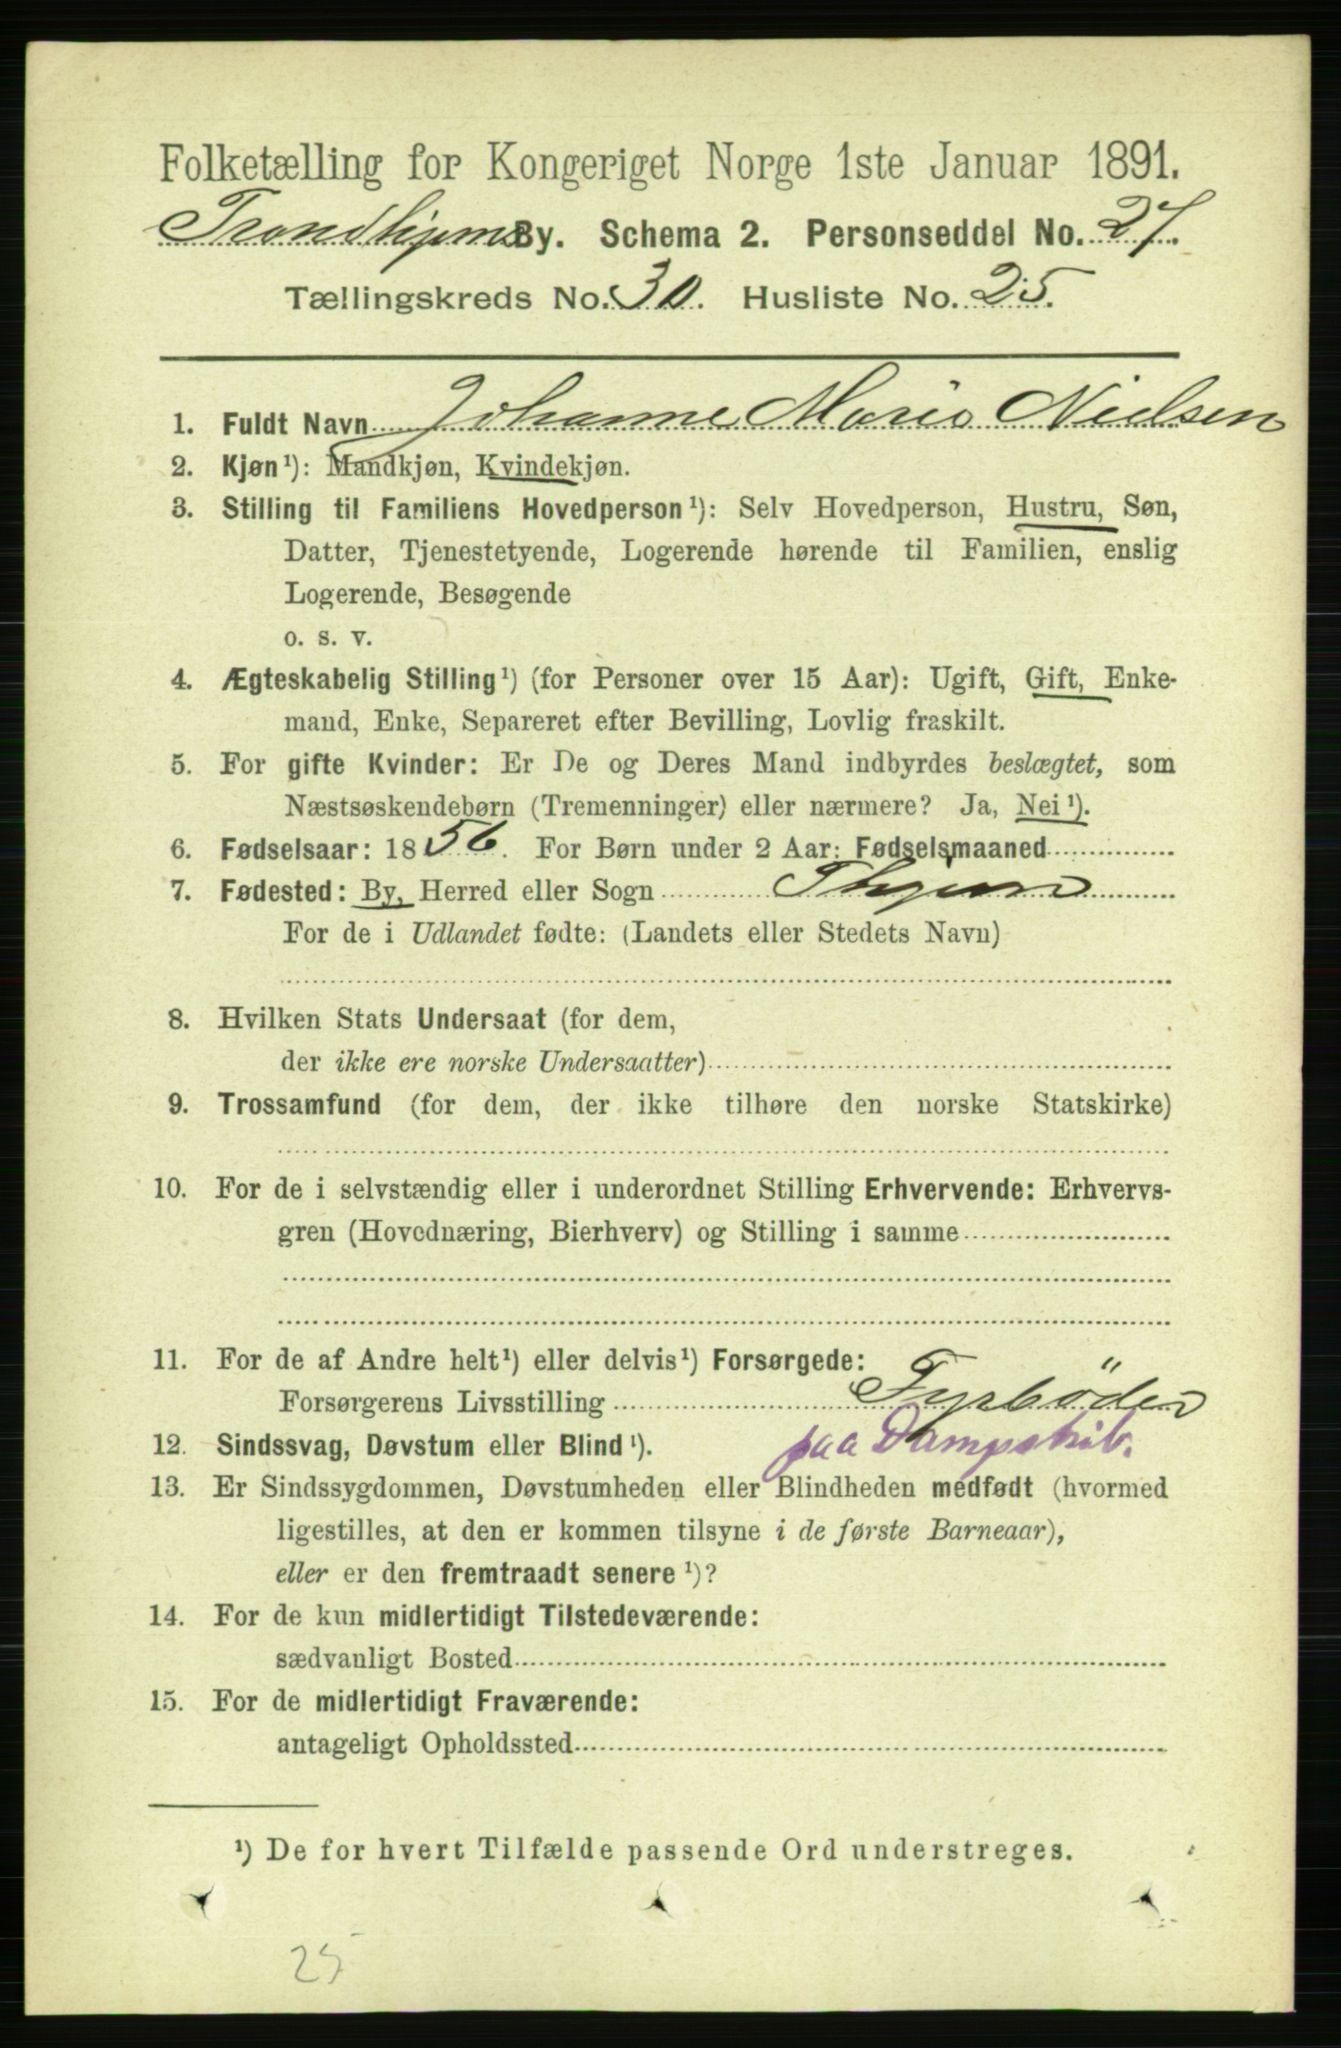 Folketælling for Kongeriget Norge 1ste Januar 1891.
Trondhjems By. Schema 2. Personseddel No. 27.
Tællingskreds No. 30. Husliste No. 25.
1. Fuldt Navn Johanne Marie Nielsen
2. Kjøn¹): Mandkjøn, Kvindekjøn.
3. Stilling til Familiens Hovedperson¹): Selv Hovedperson, Hustru, Søn,
Datter, Tjenestetyende, Logerende hørende til Familien, enslig
Logerende, Besøgende
o. s. v.
4. Ægteskabelig Stilling¹) (for Personer over 15 Aar): Ugift, Gift, Enke-
mand, Enke, Separeret efter Bevilling, Lovlig fraskilt.
5. For gifte Kvinder: Er De og Deres Mand indbyrdes beslægtet, som
Næstsøskendebørn (Tremenninger) eller nærmere? Ja, Nei¹).
6. Fødselsaar: 1856. For Børn under 2 Aar: Fødselsmaaned
7. Fødested: By, Herred eller Sogn Thjem
For de i Udlandet fødte: (Landets eller Stedets Navn)
8. Hvilken Stats Undersaat (for dem,
der ikke ere norske Undersaatter)
9. Trossamfund (for dem, der ikke tilhøre den norske Statskirke)
10. For de i selvstændig eller i underordnet Stilling Erhvervende: Erhvervs-
gren (Hovednæring, Bierhverv) og Stilling i samme
11. For de af Andre helt¹) eller delvis¹) Forsørgede:
Forsørgerens Livsstilling Fyrböder
12. Sindssvag, Døvstum eller Blind¹). paa Dampskib.
13. Er Sindssygdommen, Døvstumheden eller Blindheden medfødt (hvormed
ligestilles, at den er kommen tilsyne i de første Barneaar),
eller er den fremtraadt senere¹)?
14. For de kun midlertidigt Tilstedeværende:
sædvanligt Bosted
15. For de midlertidigt Fraværende:
antageligt Opholdssted
¹) De for hvert Tilfælde passende Ord understreges.
25